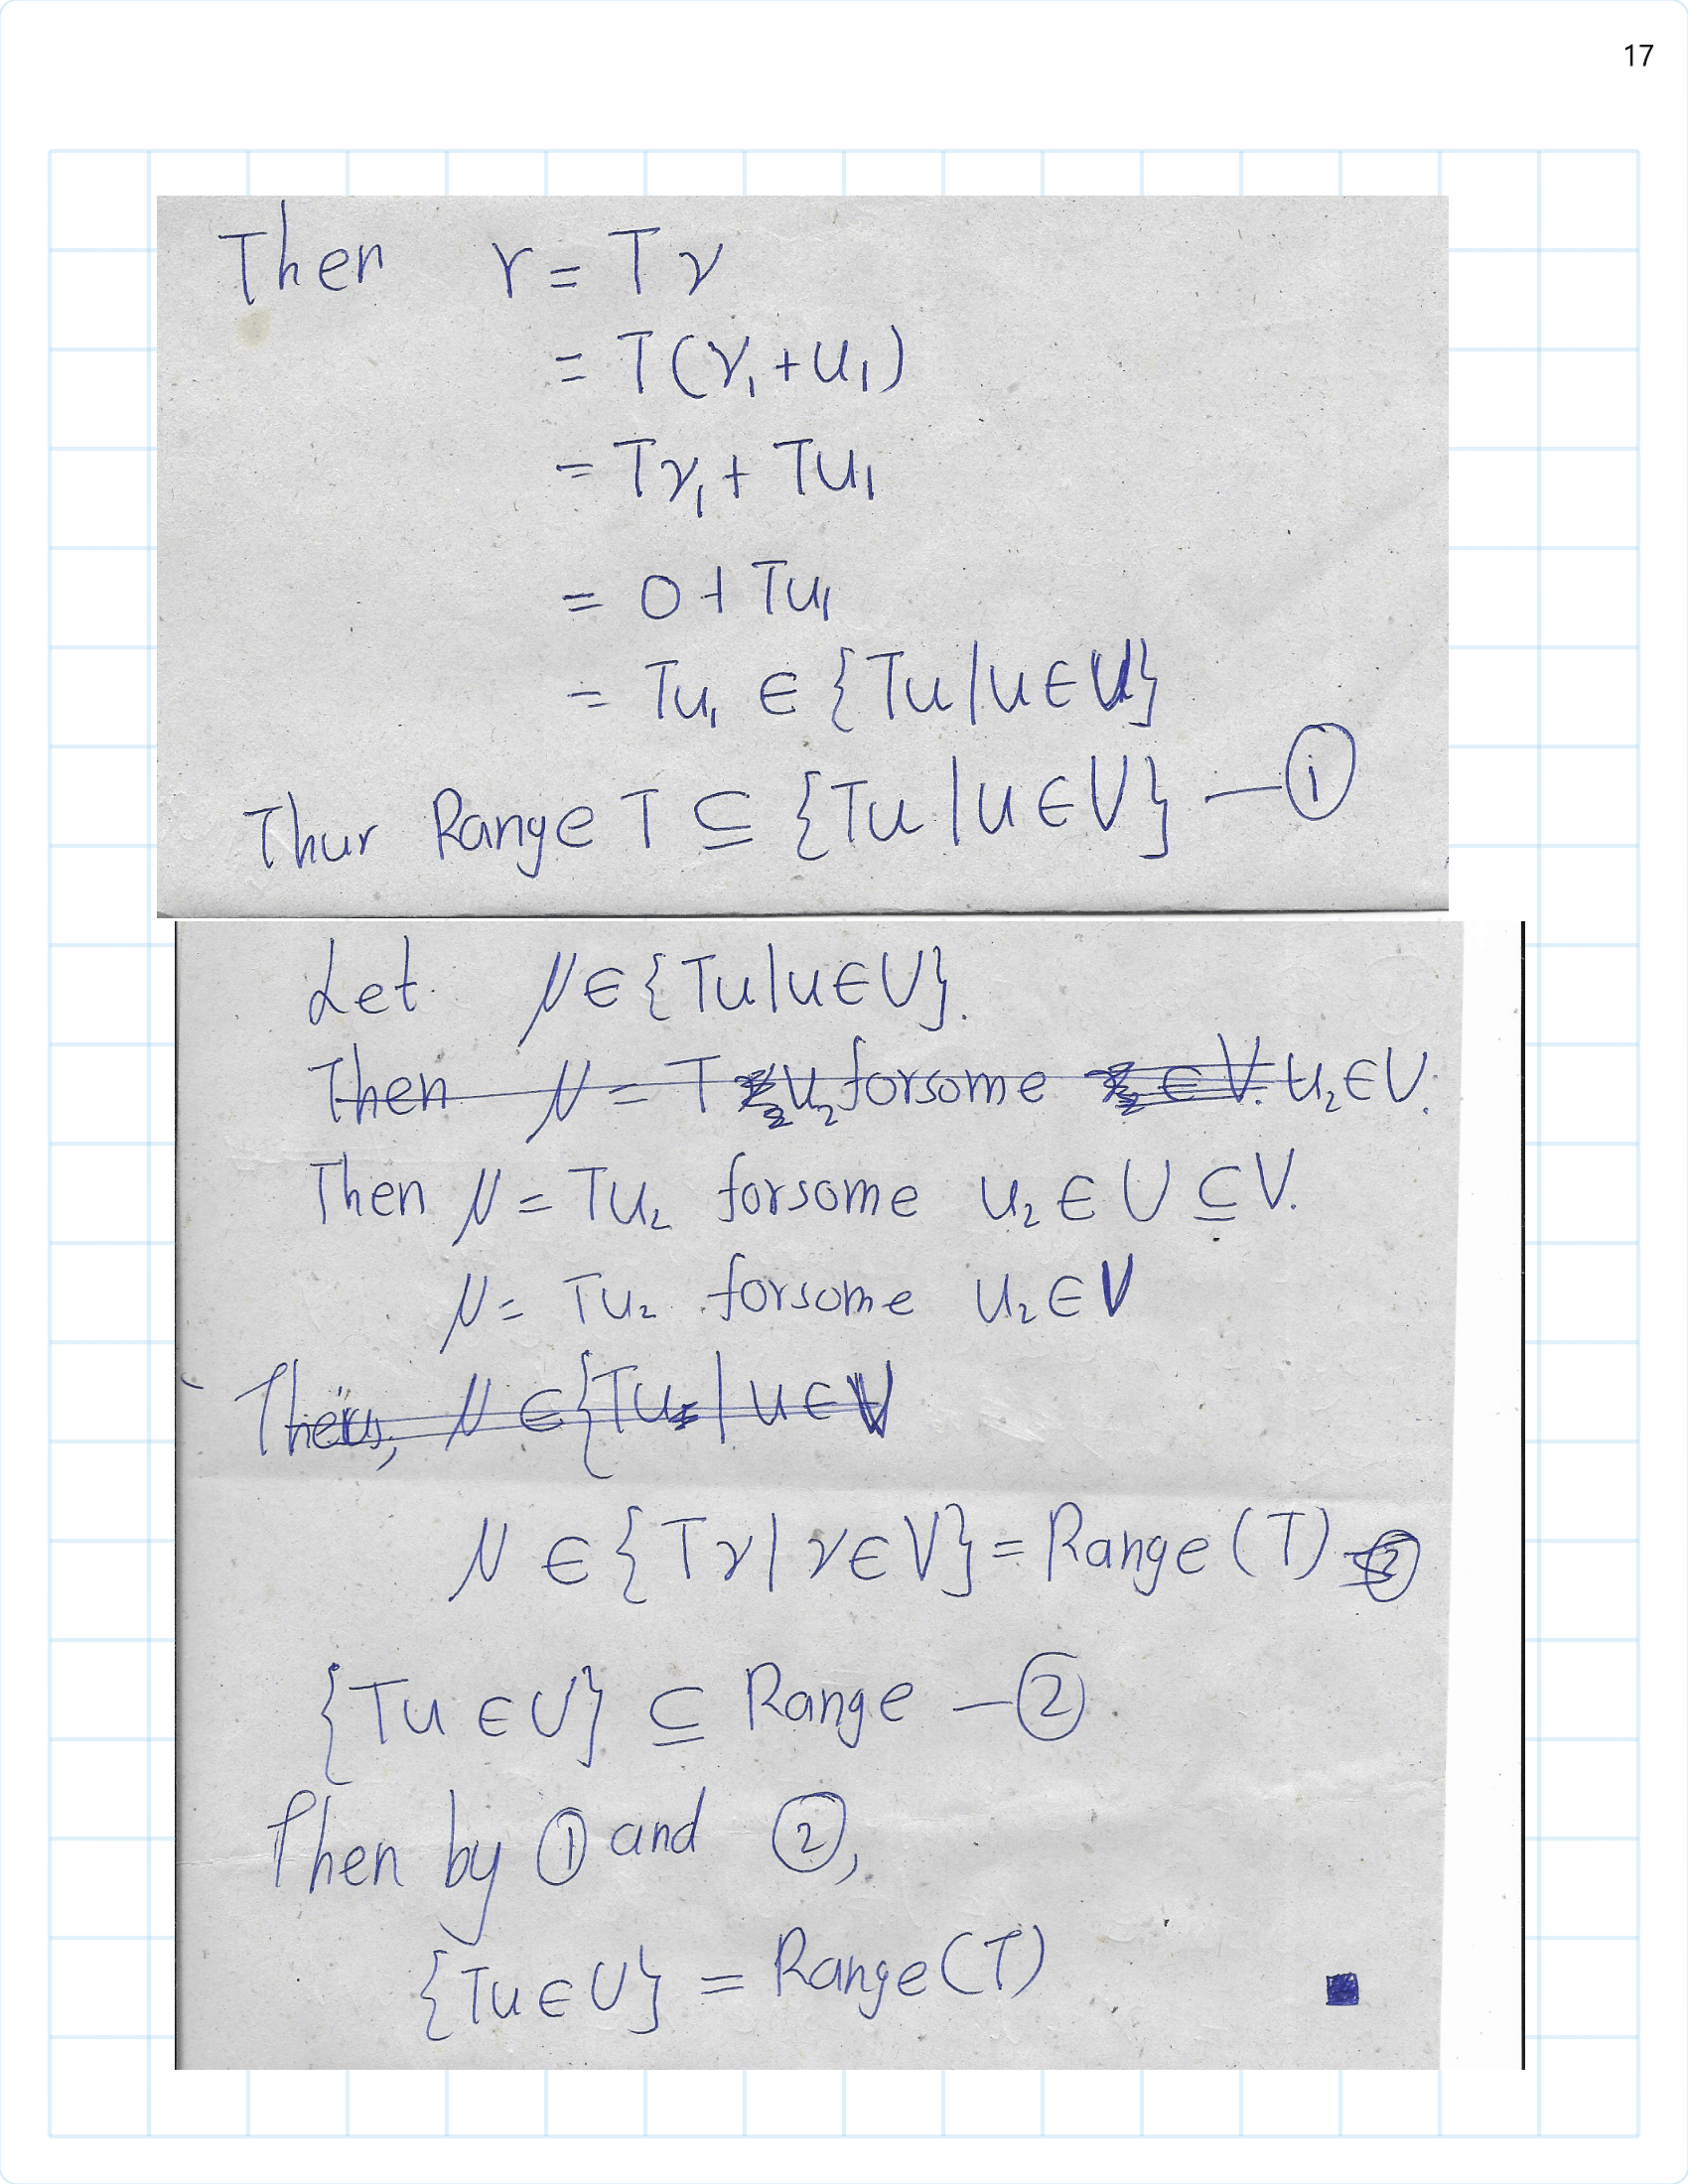 17
Then r = Tv
= T(v₁+u₁)
= Tv₁ + Tu₁
= 0 + Tu₁
= Tu₁ ∈ {Tu | u ∈ U}
Thus Range T ⊆ {Tu | u ∈ U} — ①
Let μ ∈ {Tu | u ∈ U}.
Then μ = T u₂ for some u₂ ∈ U.
Then μ = Tu₂ for some u₂ ∈ U ⊆ V.
μ = Tu₂ for some u₂ ∈ V
Thus, μ ∈ {Tu | u ∈ V
μ ∈ {Tv | v ∈ V} = Range(T)
{Tu ∈ U} ⊆ Range — ②
Then by ① and ②,
{Tu ∈ U} = Range(T)